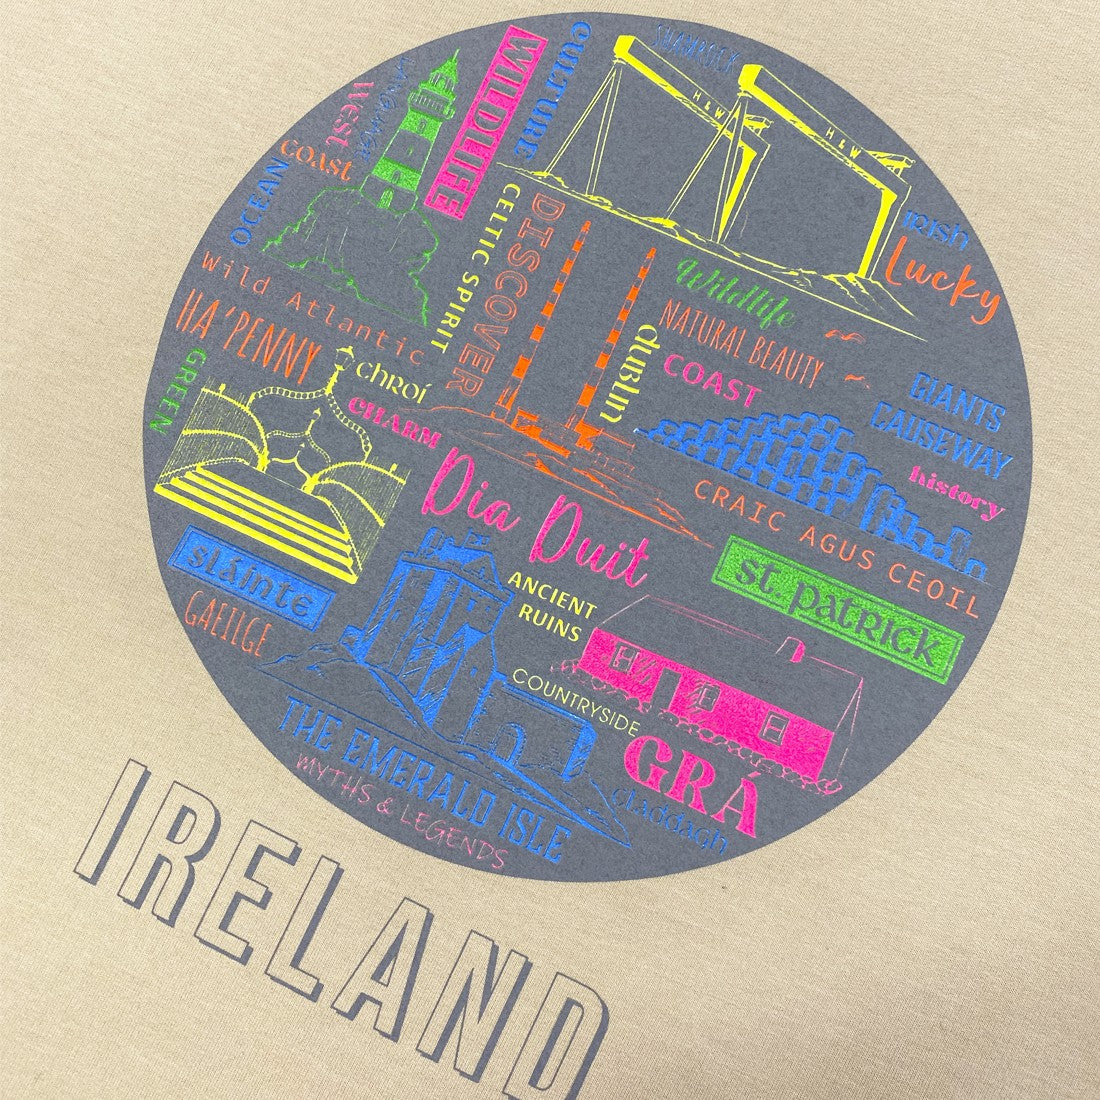 SHAMROCK
CULTURE
WILDLIFE
West
coast
OCEAN
H & W
H & W
IRISH
Lucky
CELTIC SPIRIT
DISCOVER
Wild Atlantic
HA'PENNY
GREEN
chroí
CHARM
Wildlife
NATURAL BEAUTY
COAST
DUBLIN
GIANTS
CAUSEWAY
history
Dia Duit
CRAIC AGUS CEOIL
sláinte
GAEILGE
ANCIENT
RUINS
st. patrick
COUNTRYSIDE
GRÁ
claddagh
THE EMERALD ISLE
MYTHS & LEGENDS
IRELAND